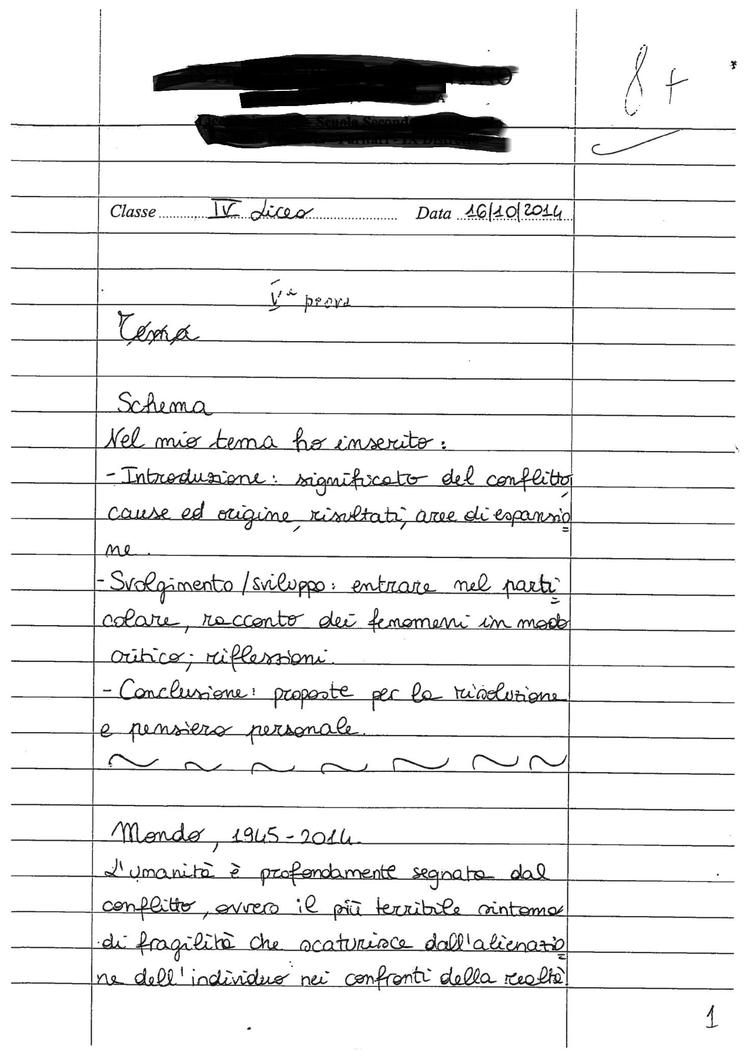 8+
Scuola Second
Classe ........ IV Liceo ........ Data 16/10/2014
Vª prova
Tema
Schema
Nel mio tema ho inserito:
- Introduzione: significato del conflitto,
cause ed origine, risultati, aree di espansio
ne.
- Svolgimento/sviluppo: entrare nel parti
colare, racconto dei fenomeni in modo
critico; riflessioni.
- Conclusione: proposte per la risoluzione
e pensiero personale.
Mondo, 1945-2014.
L'umanità è profondamente segnata dal
conflitto, ovvero il più terribile sintomo
di fragilità che scaturisce dall'alienazio
ne dell'individuo nei confronti della realtà
1